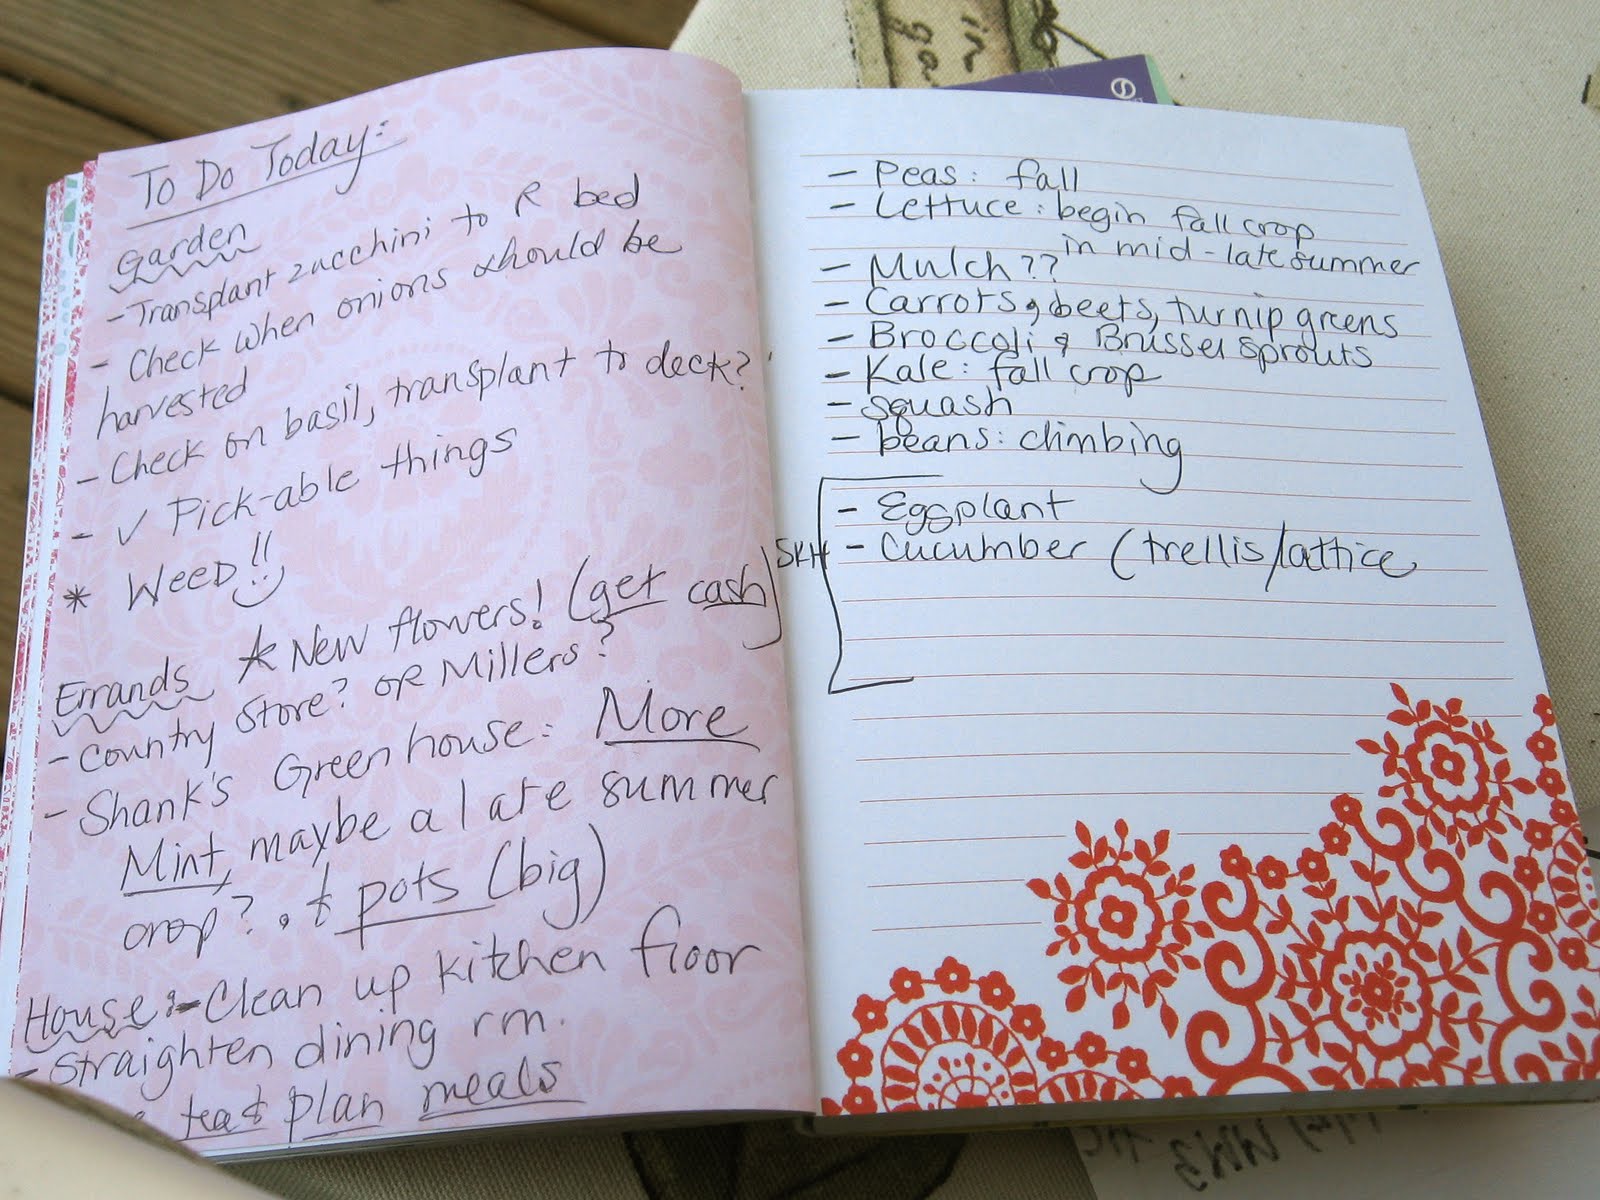 To Do Today:
Garden
- Transplant zucchini to R bed
- Check when onions should be
harvested
- Check on basil, transplant to deck?
- ✓ Pick-able things
* WEED!!
Errands * New flowers! (get cash)
- Country Store? OR Millers?
- Shank's Greenhouse: More
Mint, maybe a late summer
crop? & pots (big)
House: - Clean up kitchen floor
- Straighten dining rm.
tea & plan meals
- Peas: fall
- Lettuce: begin fall crop
in mid-late summer
- Mulch??
- Carrots, beets, turnip greens
- Broccoli & Brussel sprouts
- Kale: fall crop
- squash
- beans: climbing
- Eggplant
SKH - Cucumber (trellis/lattice
in
ga